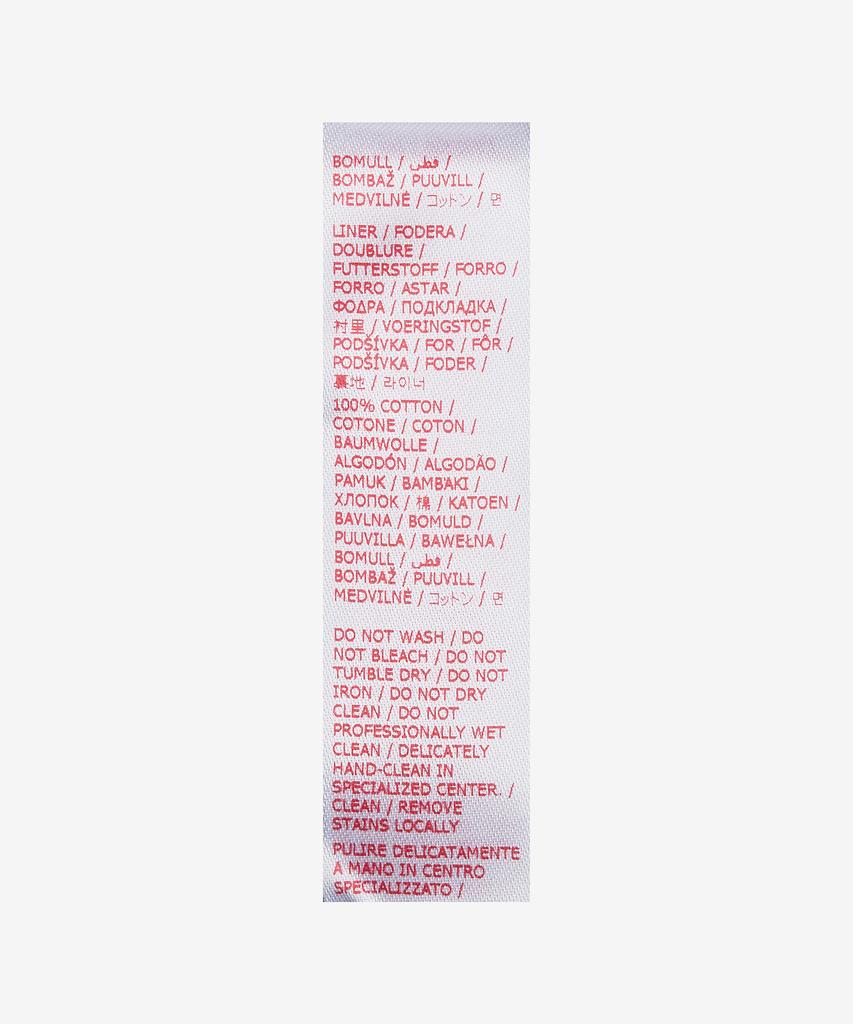 BOMULL / قطن /
BOMBAŽ / PUUVILL /
MEDVILNĖ / コットン / 면
LINER / FODERA /
DOUBLURE /
FUTTERSTOFF / FORRO /
FORRO / ASTAR /
ΦΟΔΡΑ / ПОДКЛАДКА /
衬里 / VOERINGSTOF /
PODŠÍVKA / FOR / FÔR /
PODŠÍVKA / FODER /
裏地 / 라이너
100% COTTON /
COTONE / COTON /
BAUMWOLLE /
ALGODÓN / ALGODÃO /
PAMUK / ΒΑΜΒΆΚΙ /
ХЛОПОК / 棉 / KATOEN /
BAVLNA / BOMULD /
PUUVILLA / BAWEŁNA /
BOMULL / قطن /
BOMBAŽ / PUUVILL /
MEDVILNĖ / コットン / 면
DO NOT WASH / DO
NOT BLEACH / DO NOT
TUMBLE DRY / DO NOT
IRON / DO NOT DRY
CLEAN / DO NOT
PROFESSIONALLY WET
CLEAN / DELICATELY
HAND-CLEAN IN
SPECIALIZED CENTER. /
CLEAN / REMOVE
STAINS LOCALLY
PULIRE DELICATAMENTE
A MANO IN CENTRO
SPECIALIZZATO /